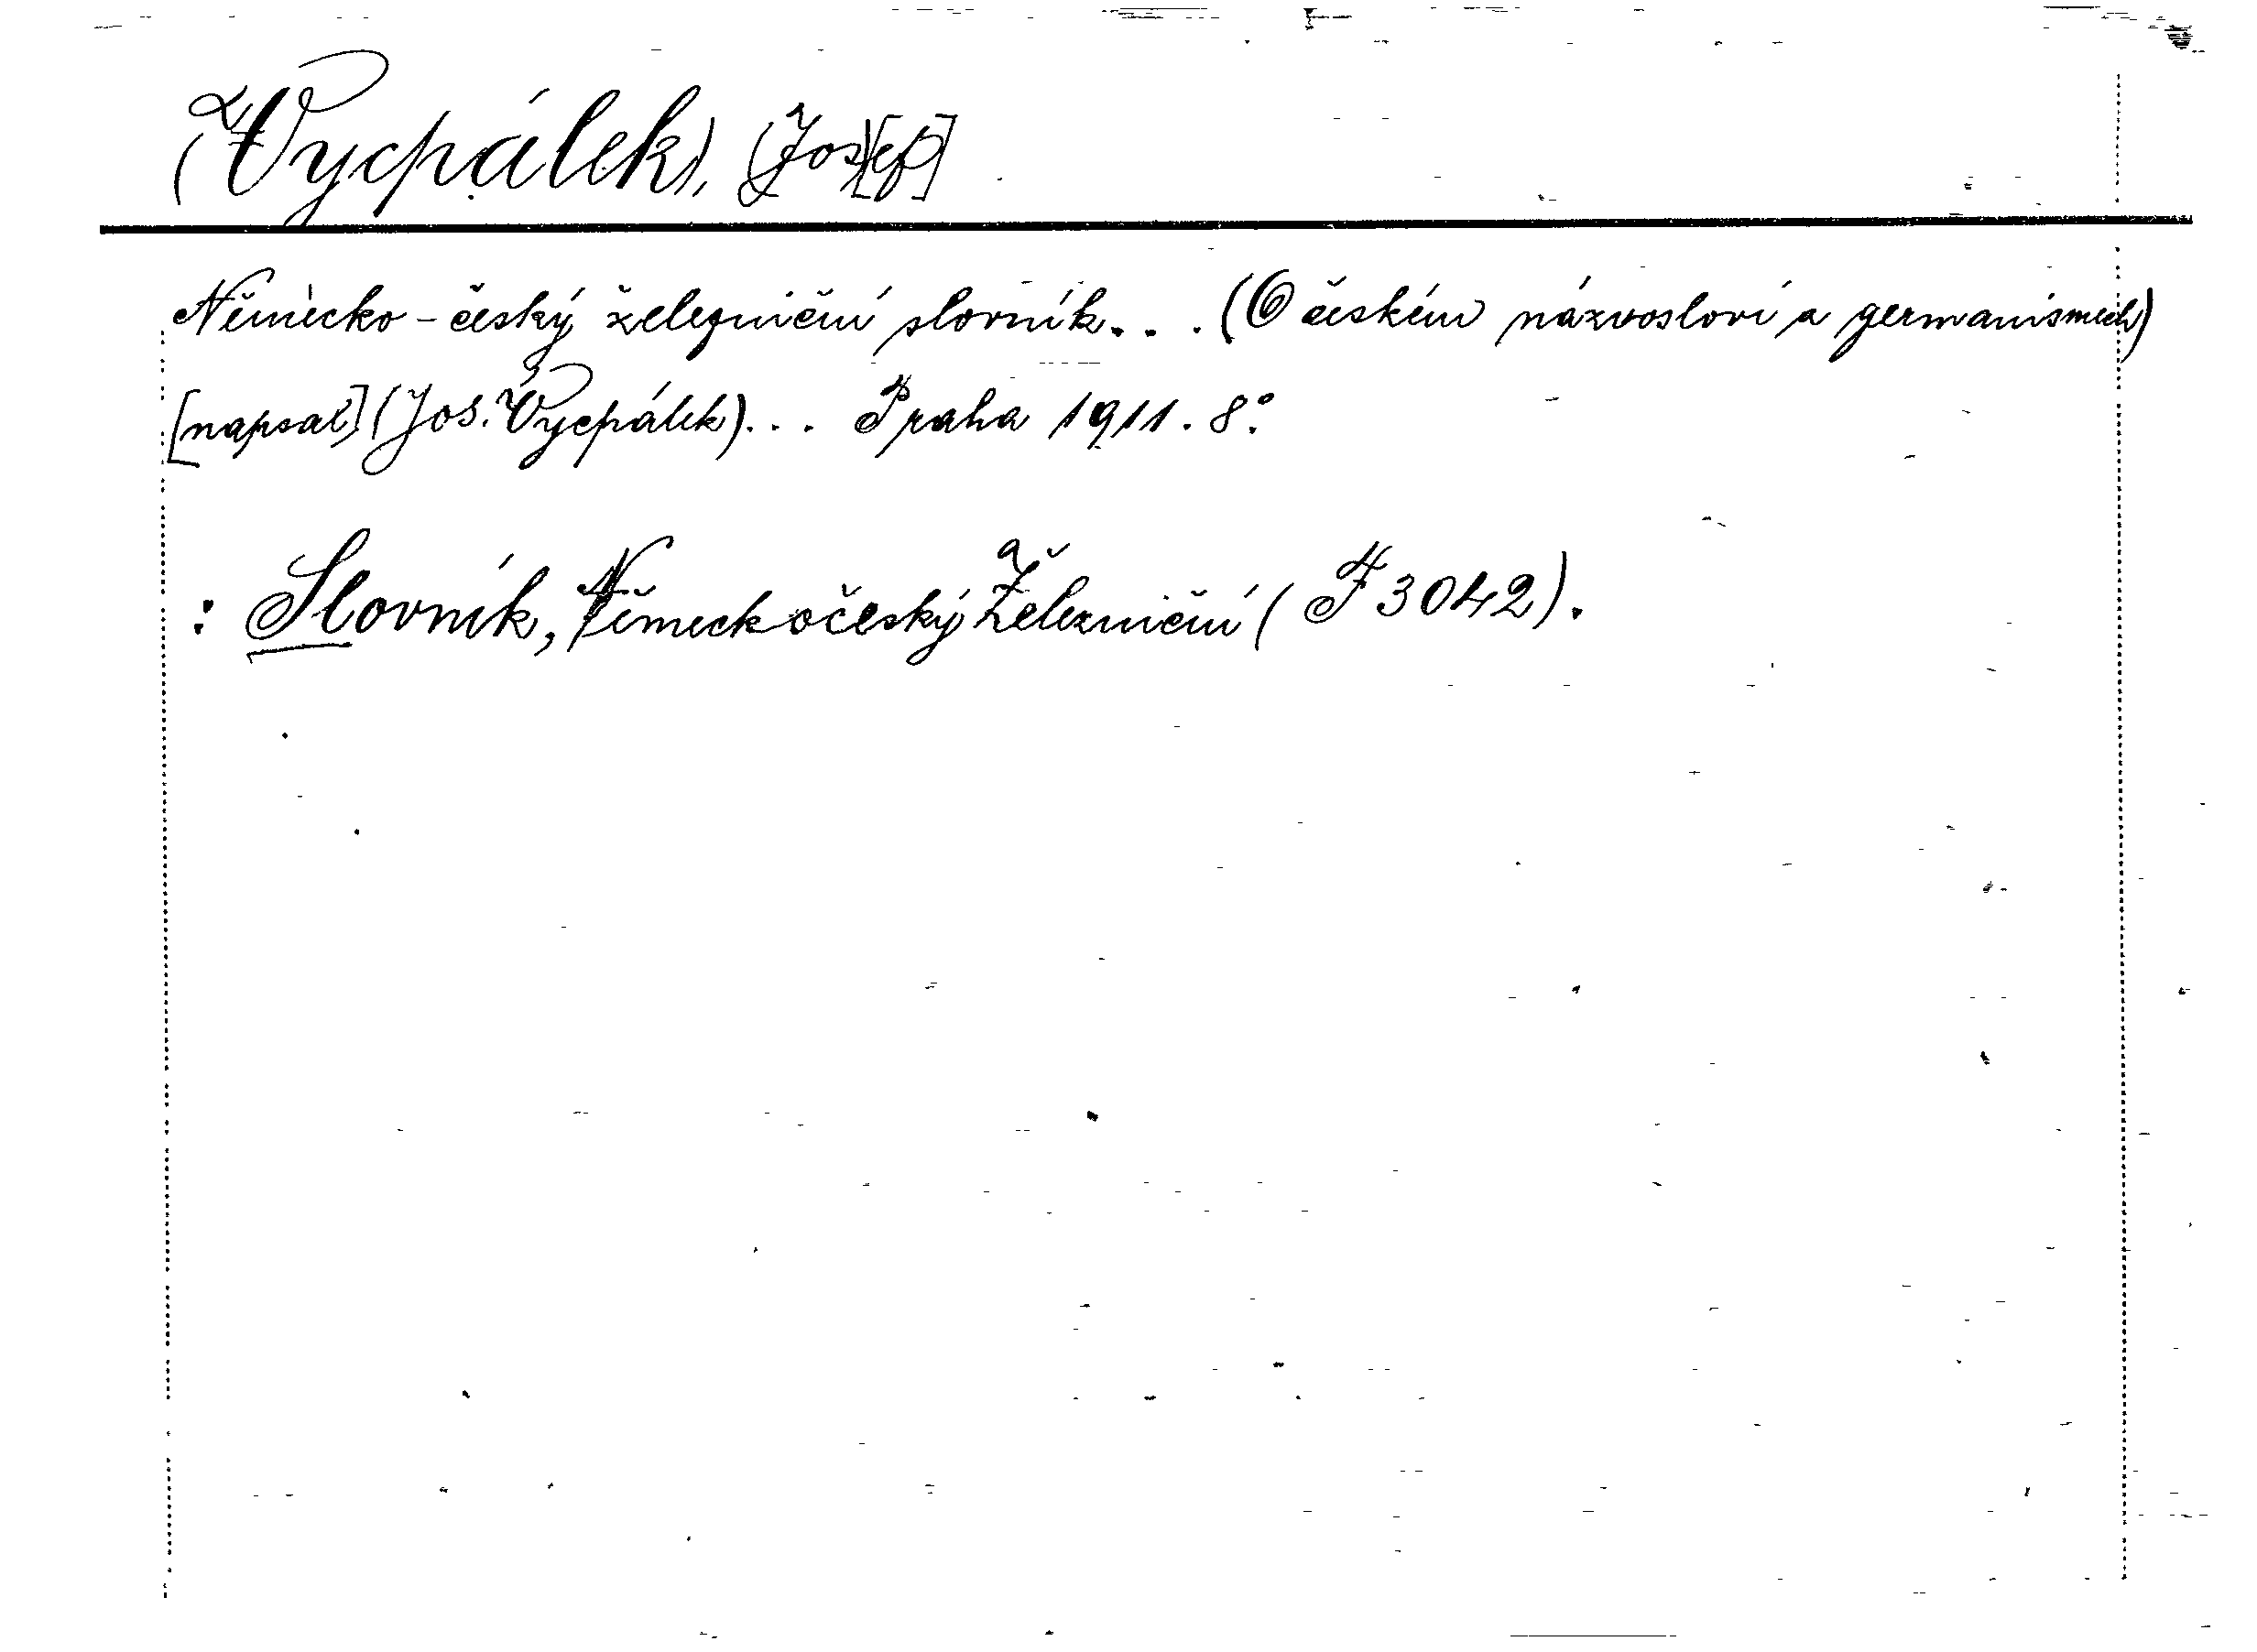 (Vycpálek), (Jos)[ef]
Německo-český železniční slovník... (O českém názvosloví a germanismech)
[napsal] (Jos. Vycpálek)... Praha 1911. 8°.
: Slovník, Německočeský železniční (F 3042).